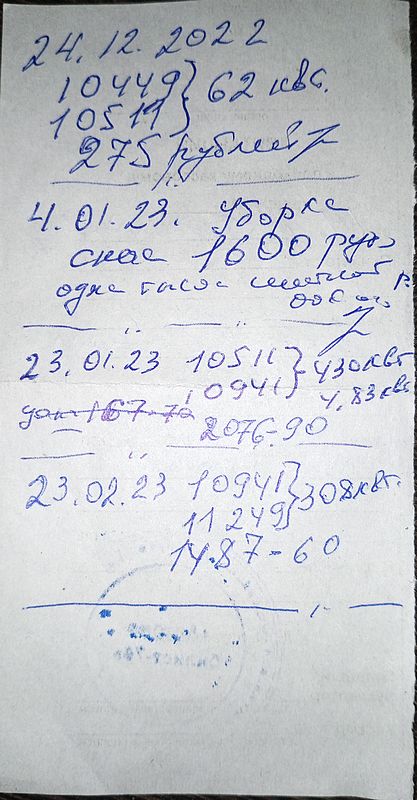 24.12.2022
10449 } 62 квт.
10511
275 рублей
4.01.23. Уборка
снега 1600 руб
одна тысяча шестьсот р.
23.01.23 10511 } 430квт
10941 4,83квт
167-70
2076-90
23.02.23 10941 } 308квт.
11249
1487-60